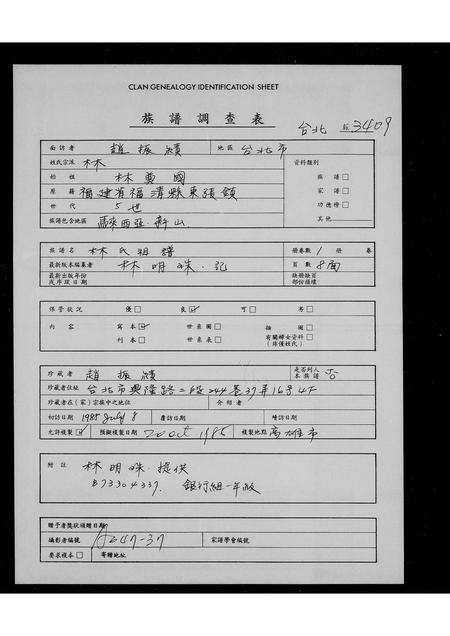 CLAN GENEALOGY IDENTIFICATION SHEET
族譜調查表
台北 3409
面訪者 趙振績 地區 台北市
姓氏宗派 林 資料類別
始祖 林奠國 族譜□
原籍 福建省福清縣東張鎮 家譜□
世代 5世 功德榜□
族譜包含地區 馬來西亞. 其他
族譜名 林氏祖譜 册卷數 1 册 卷
最新版本編纂者 林明珠.記 頁數 8面
最新出版年份或序跋日期 缺册缺頁部份損壞
保管狀況 優□ 良☑ 可□ 劣□
內容 寫本☑ 世系圖□ 插圖□
刊本□ 世系表□ 有關婦女資料□(非僅姓氏)
珍藏者 趙振績 是否列入本族譜 否
珍藏者住址 台北市興隆路二段244巷37弄16号4F
珍藏者在(家)宗族中之地位 介紹者
初訪日期 1985 July 8 覆訪日期 續訪日期
允許複製☑ 預擬複製日期 20 oct 1985 複製地點 高雄市
附註 林明珠.提供
B73304337. 銀行組一年級
贈予者獎狀頒贈日期
攝影者編號 A247-37 家譜學會編號
要求複本□ 寄贈地址